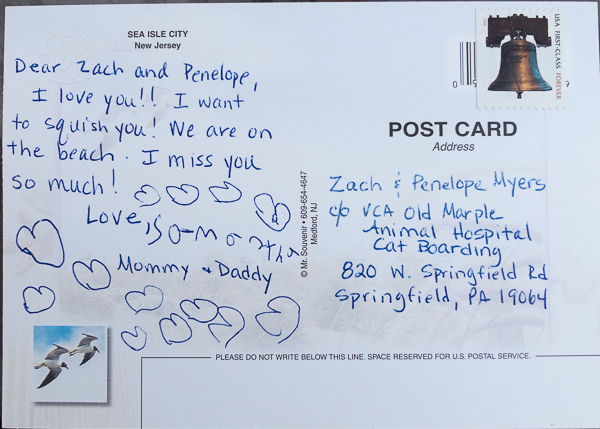 SEA ISLE CITY
New Jersey
Dear Zach and Penelope,
I love you!! I want
to squish you! We are on
the beach. I miss you
so much!
Love,
Mommy + Daddy
USA FIRST-CLASS FOREVER
POST CARD
Address
Zach & Penelope Myers
c/o VCA Old Marple
Animal Hospital
Cat Boarding
820 W. Springfield Rd
Springfield, PA 19064
© Mr. Souvenir • 609-654-4647
Medford, NJ
PLEASE DO NOT WRITE BELOW THIS LINE. SPACE RESERVED FOR U.S. POSTAL SERVICE.